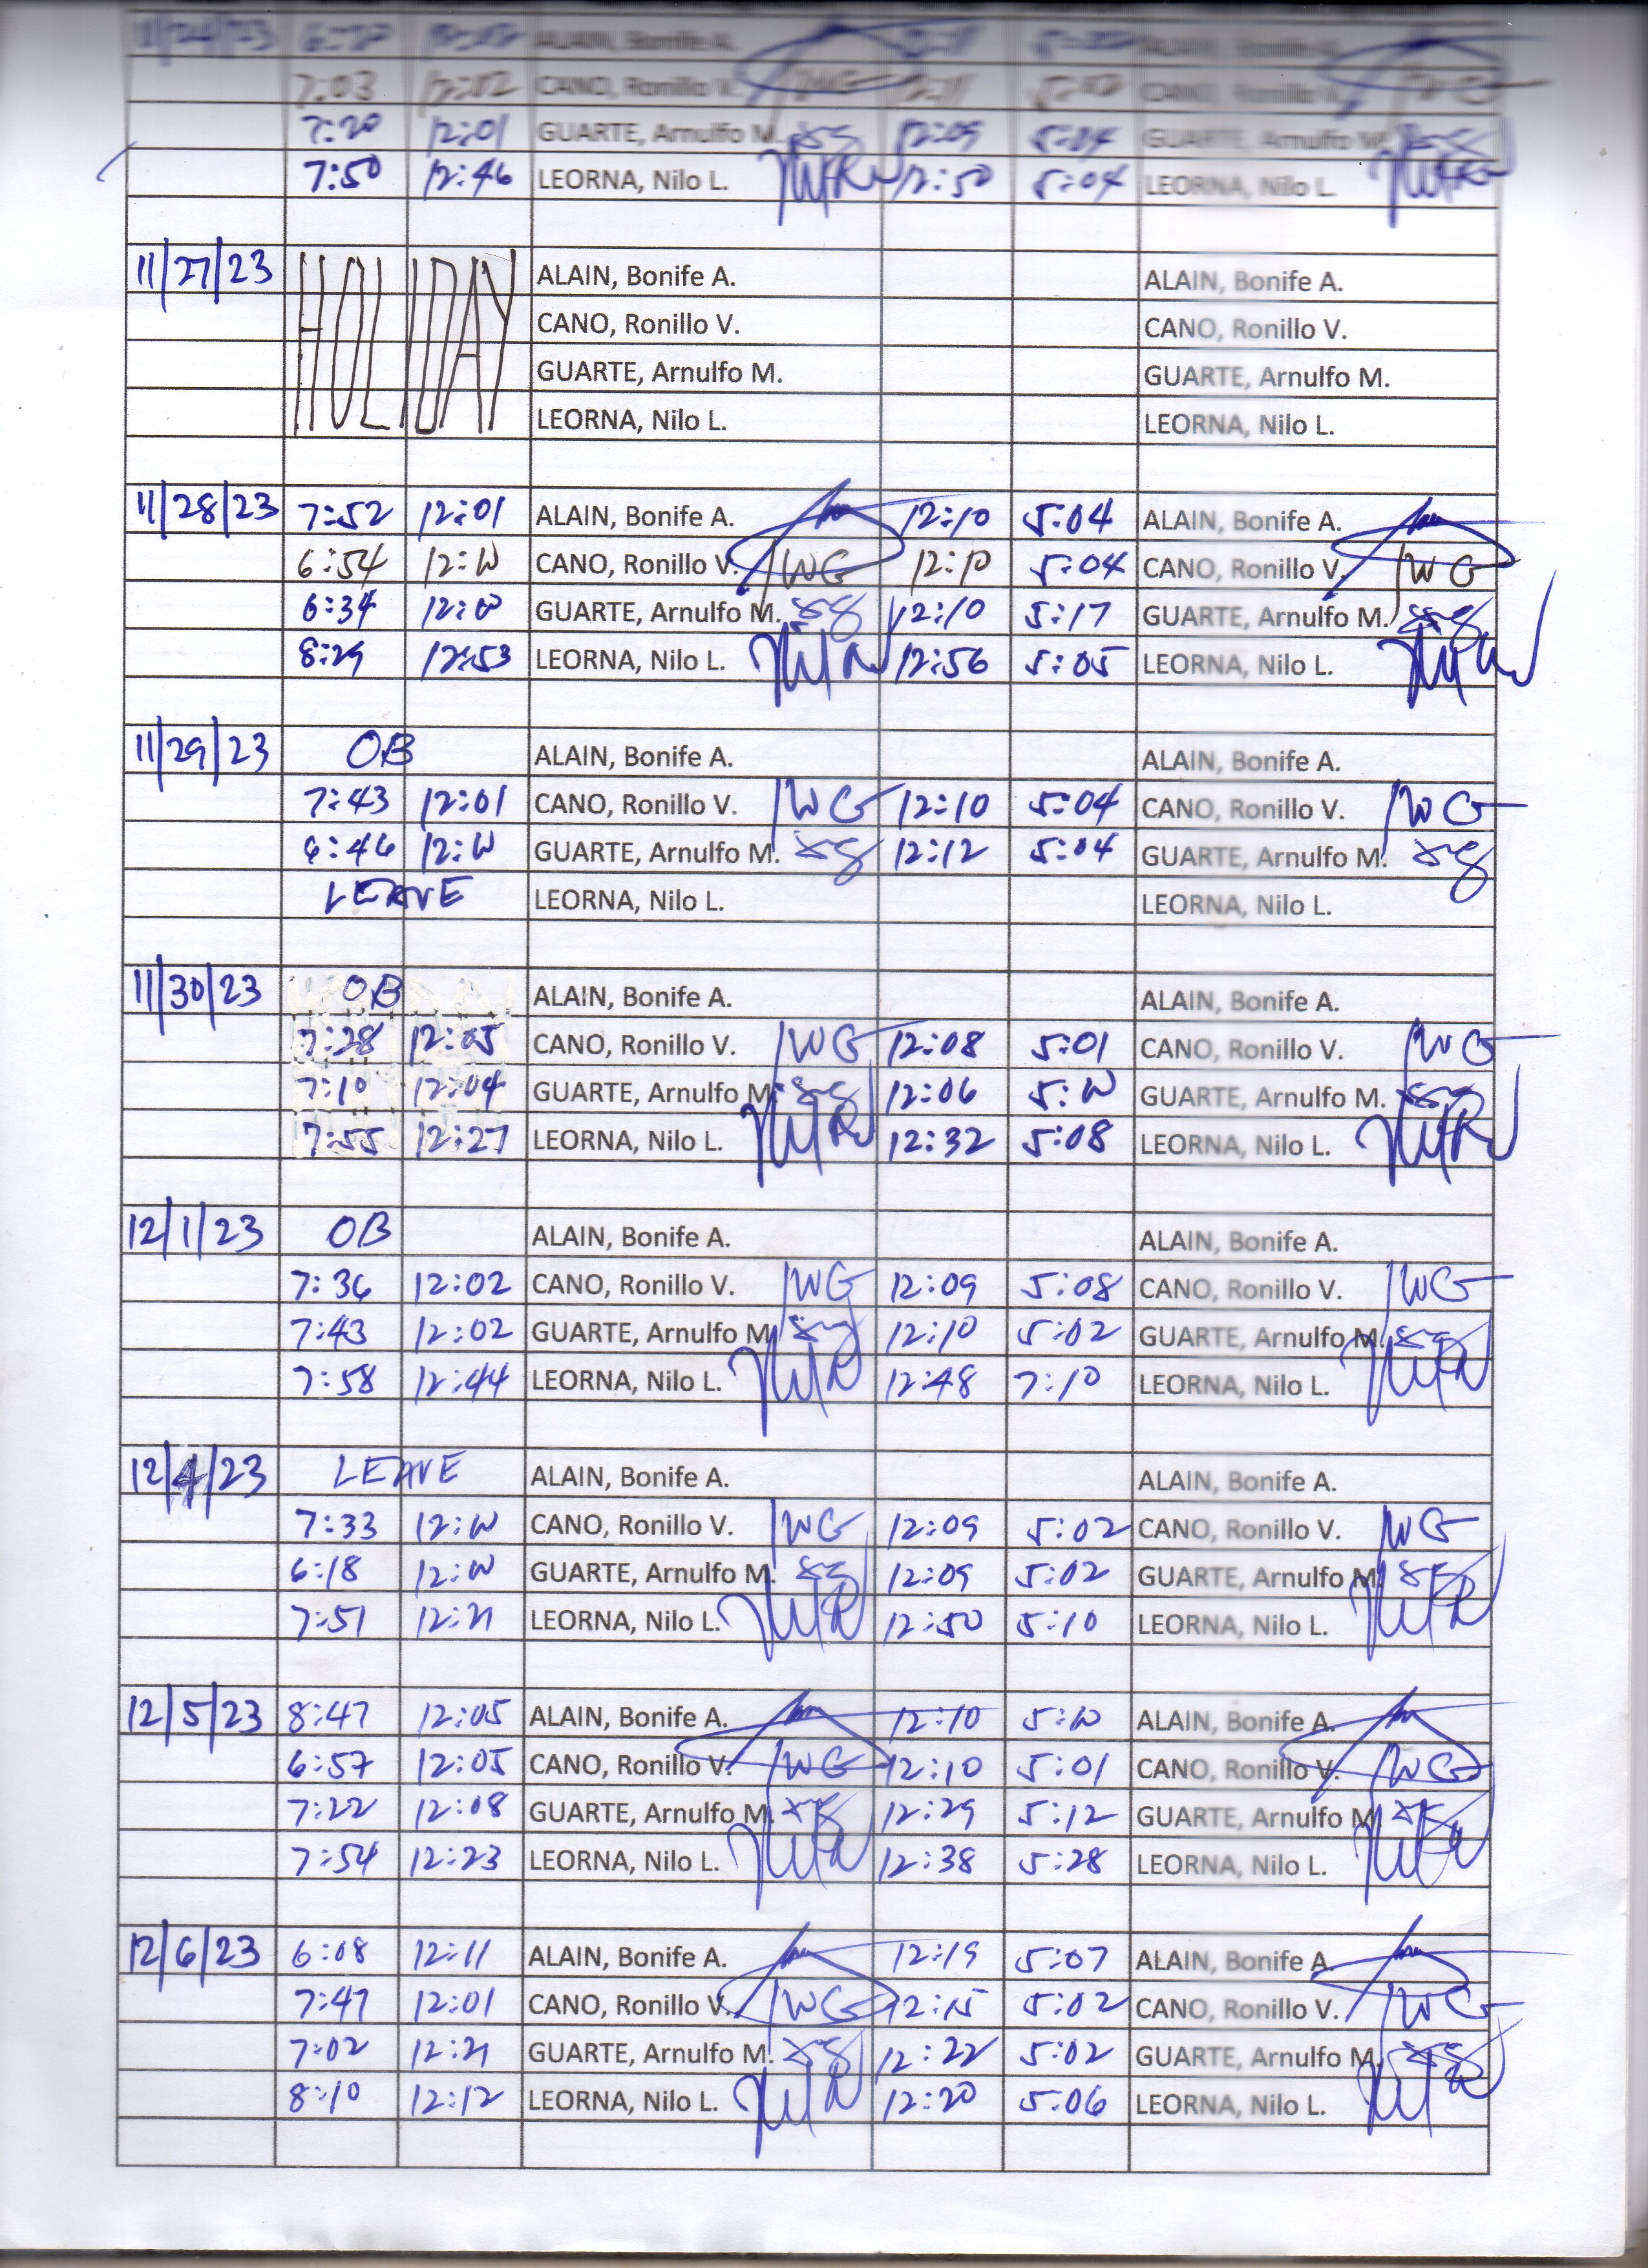 11/24/23 ALAIN, Bonife A. ALAIN, Bonife A.
7:03 12:02 CANO, Ronillo V. CANO, Ronillo V.
7:20 12:01 GUARTE, Arnulfo M. 12:09 5:04 GUARTE, Arnulfo M.
7:50 12:46 LEORNA, Nilo L. 12:50 5:04 LEORNA, Nilo L.
11/27/23 HOLIDAY ALAIN, Bonife A. ALAIN, Bonife A.
CANO, Ronillo V. CANO, Ronillo V.
GUARTE, Arnulfo M. GUARTE, Arnulfo M.
LEORNA, Nilo L. LEORNA, Nilo L.
11/28/23 7:52 12:01 ALAIN, Bonife A. 12:10 5:04 ALAIN, Bonife A.
6:54 12:00 CANO, Ronillo V. 12:10 5:04 CANO, Ronillo V.
6:34 12:00 GUARTE, Arnulfo M. 12:10 5:17 GUARTE, Arnulfo M.
8:29 12:53 LEORNA, Nilo L. 12:56 5:05 LEORNA, Nilo L.
11/29/23 OB ALAIN, Bonife A. ALAIN, Bonife A.
7:43 12:01 CANO, Ronillo V. 12:10 5:04 CANO, Ronillo V.
6:46 12:00 GUARTE, Arnulfo M. 12:12 5:04 GUARTE, Arnulfo M.
LEAVE LEORNA, Nilo L. LEORNA, Nilo L.
11/30/23 OB ALAIN, Bonife A. ALAIN, Bonife A.
7:28 12:05 CANO, Ronillo V. 12:08 5:01 CANO, Ronillo V.
7:10 12:04 GUARTE, Arnulfo M. 12:06 5:00 GUARTE, Arnulfo M.
7:55 12:27 LEORNA, Nilo L. 12:32 5:08 LEORNA, Nilo L.
12/1/23 OB ALAIN, Bonife A. ALAIN, Bonife A.
7:36 12:02 CANO, Ronillo V. 12:09 5:08 CANO, Ronillo V.
7:43 12:02 GUARTE, Arnulfo M. 12:10 5:02 GUARTE, Arnulfo M.
7:58 12:44 LEORNA, Nilo L. 12:48 7:10 LEORNA, Nilo L.
12/4/23 LEAVE ALAIN, Bonife A. ALAIN, Bonife A.
7:33 12:00 CANO, Ronillo V. 12:09 5:02 CANO, Ronillo V.
6:18 12:00 GUARTE, Arnulfo M. 12:09 5:02 GUARTE, Arnulfo M.
7:51 12:21 LEORNA, Nilo L. 12:50 5:10 LEORNA, Nilo L.
12/5/23 8:47 12:05 ALAIN, Bonife A. 12:10 5:00 ALAIN, Bonife A.
6:57 12:05 CANO, Ronillo V. 12:10 5:01 CANO, Ronillo V.
7:22 12:08 GUARTE, Arnulfo M. 12:29 5:12 GUARTE, Arnulfo M.
7:54 12:23 LEORNA, Nilo L. 12:38 5:28 LEORNA, Nilo L.
12/6/23 6:08 12:11 ALAIN, Bonife A. 12:19 5:07 ALAIN, Bonife A.
7:47 12:01 CANO, Ronillo V. 12:15 5:02 CANO, Ronillo V.
7:02 12:21 GUARTE, Arnulfo M. 12:22 5:02 GUARTE, Arnulfo M.
8:10 12:12 LEORNA, Nilo L. 12:20 5:06 LEORNA, Nilo L.